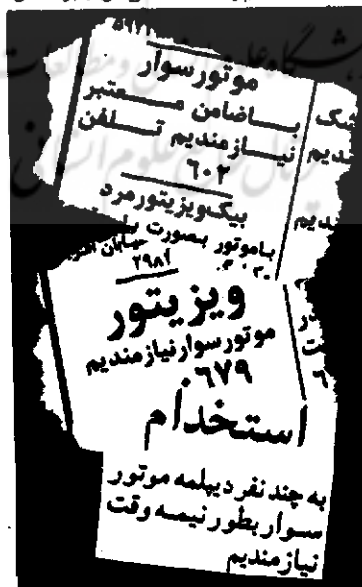 موتورسوار
باضامن معتبر
نیازمندیم تلفن
۶۰۲
بیک ویزیتور مرد
باموتور بصورت
۲۹۸۲
ویزیتور
موتورسوار نیازمندیم
۶۷۹
استخدام
به چند نفر دیپلمه موتور
سوار بطور نیمه وقت
نیازمندیم